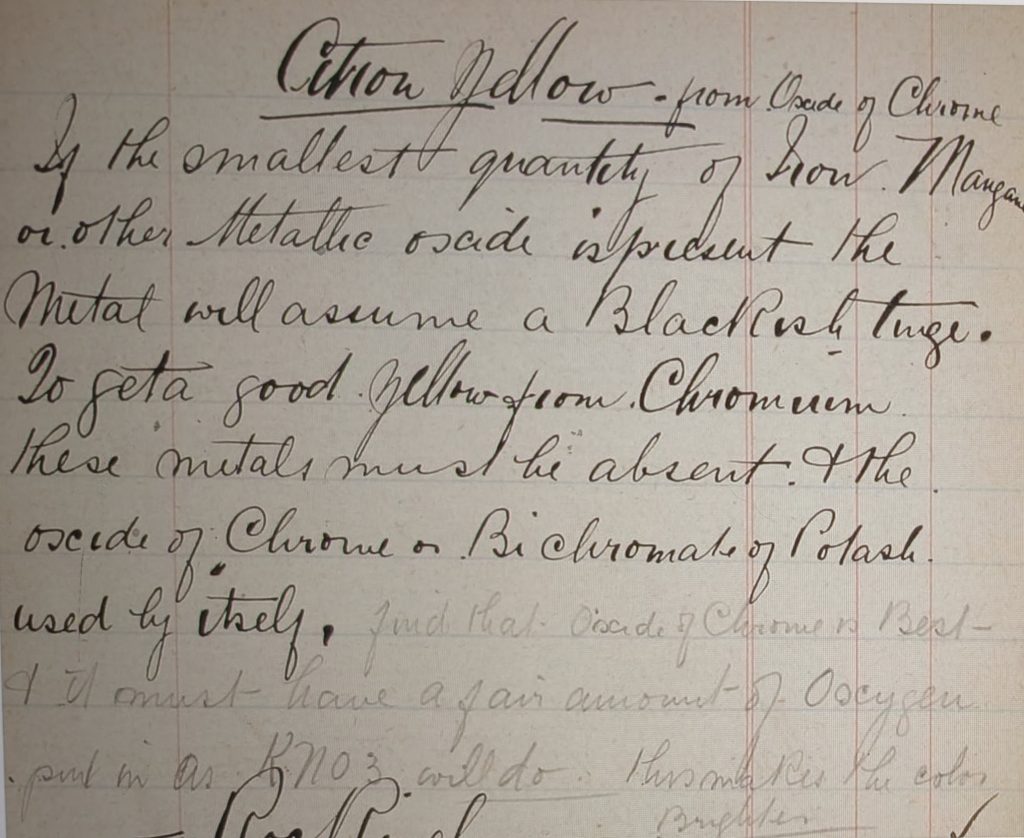 Citron Yellow - from Oxide of Chrome
If the smallest quantity of Iron. Mangan
or other Metallic oxide is present the
Metal will assume a Blackish tinge.
To get a good Yellow from Chromium
these metals must be absent. & the
oxide of Chrome or Bichromate of Potash.
used by itself. find that Oxide of Chrome is Best -
& it must have a fair amount of Oxcygen
put in as KNO3 will do. this makes the color
Brighter